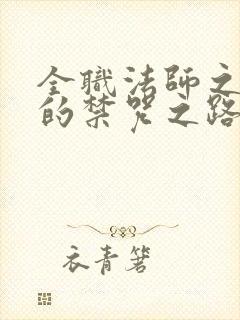 全职法师之
的禁咒之路
衣青箬